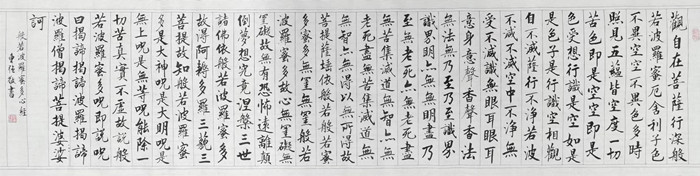 觀自在菩薩行深般
若波羅蜜厄舍利子色
不異空空不異色多時
照見五蘊皆空度一切
苦色即是空空即是
色受想行識是空如是
是色愛想行識空相觀
自不滅薩行不淨若波
不滅不滅空中不淨無
受不滅識無眼耳耳
意聲香聲香法
無法無乃至乃至識界
識界明無明盡乃
至無老死無老死盡
老死盡無苦集滅道
無苦集滅道無無
無智無得以無所得故
菩提薩埵依般若般若
波羅蜜多無罣無罣若
波羅蜜多故心無罣礙無
罣礙故無有恐怖遠離顛
倒夢想究竟涅槃三世
諸佛依般若波羅蜜多
故得阿耨多羅三藐三
菩提故知般若波羅蜜
多是大神咒是大明咒是
無上咒是無苦咒能除一
切苦真實不虛故說般
若波羅蜜多咒即說咒
曰揭諦揭諦波羅揭諦
波羅僧揭諦菩提婆婆
訶
般若波羅蜜多心經
書